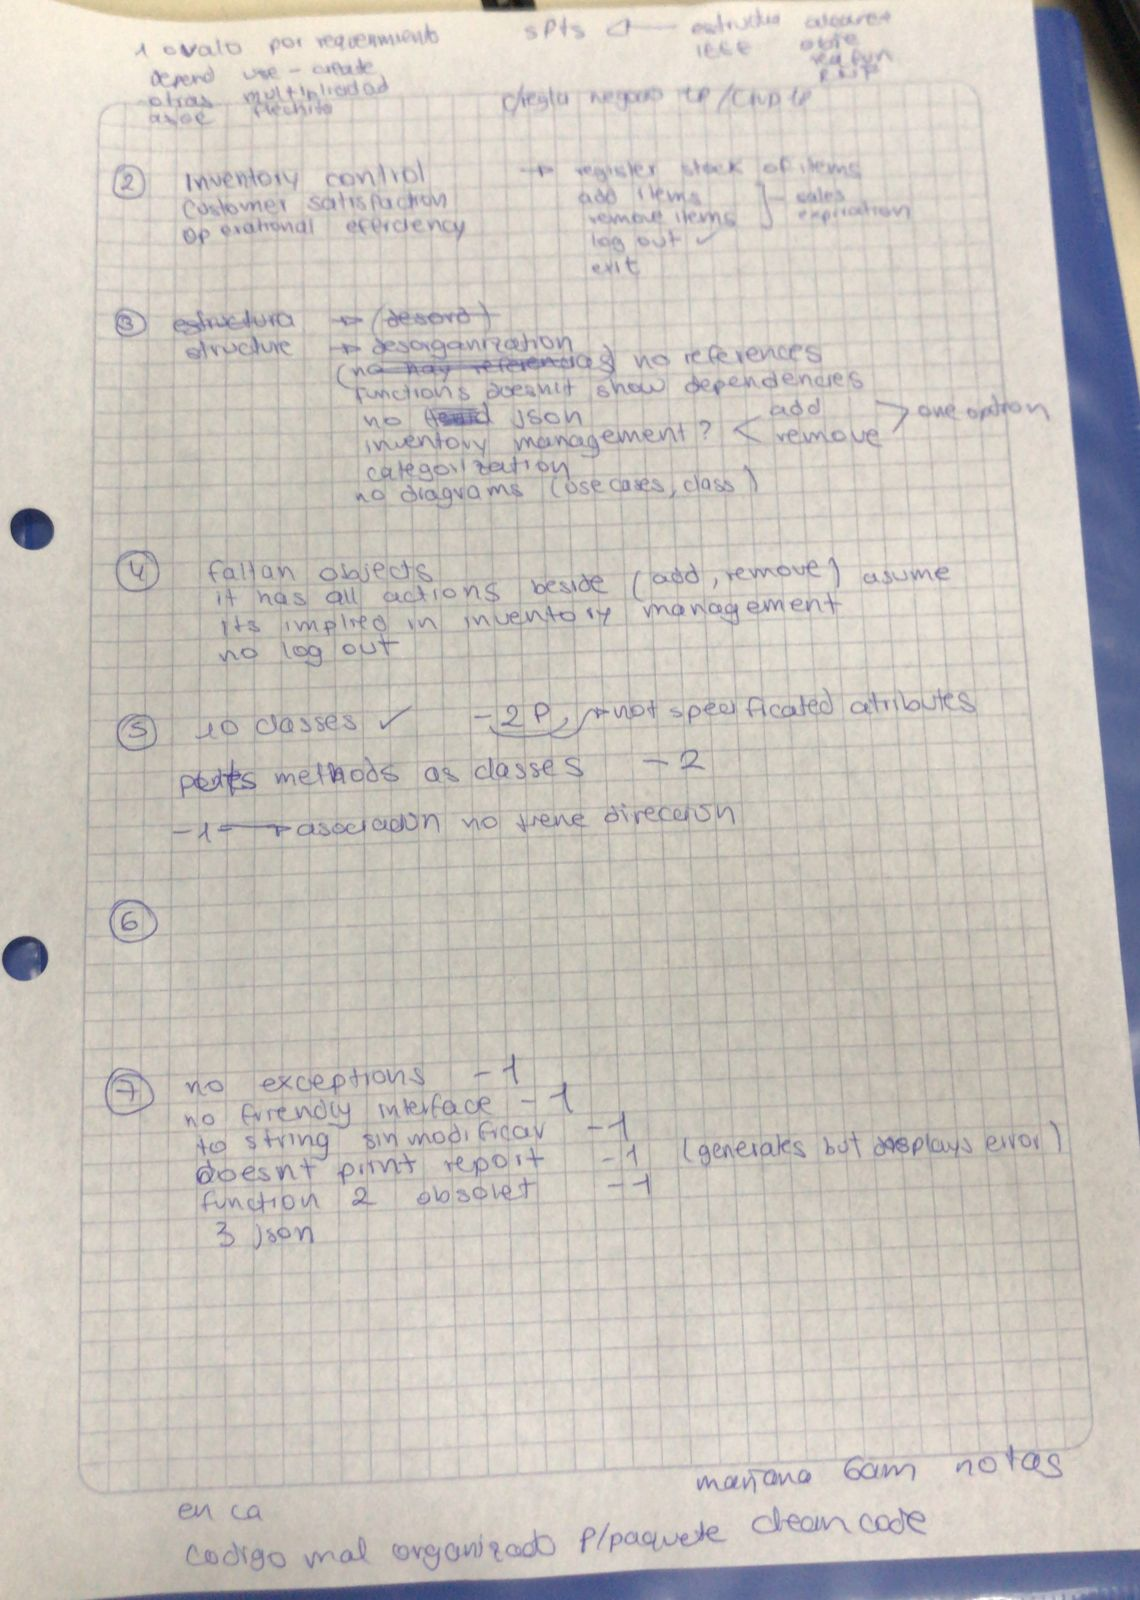 1 ovalo por requerimiento
5pts ← estructu alcance
IEEE obje
req fun
depend use - create
otras multiplicidad
asoc flechita
c/regla negocio 1p / c/up 1p
② Inventory control
Customer satisfaction
operational eferciency
→ register stock of items
add items
remove items
sales
expiration
log out ✓
exit
③ estructura → (desord)
structure → desorganization
(no hay referencias) no references
functions doesnit show dependencies
no json
inventory management? < add
remove > one option
categorization
no diagrams (use cases, class)
④ faltan objects
it has all actions beside (add, remove) asume
its implied in inventory management
no log out
⑤ 10 classes ✓ - 2 P → not specificated atributes
methods as classes - 2
-1 → asociación no tiene dirección
⑥
⑦ no exceptions - 1
no friendly interface - 1
to string sin modificar - 1
doesnt print report - 1 (generates but displays error)
function 2 obsolet - 1
3 json
mañana 6am notas
en ca
codigo mal organizado P/paquete clean code